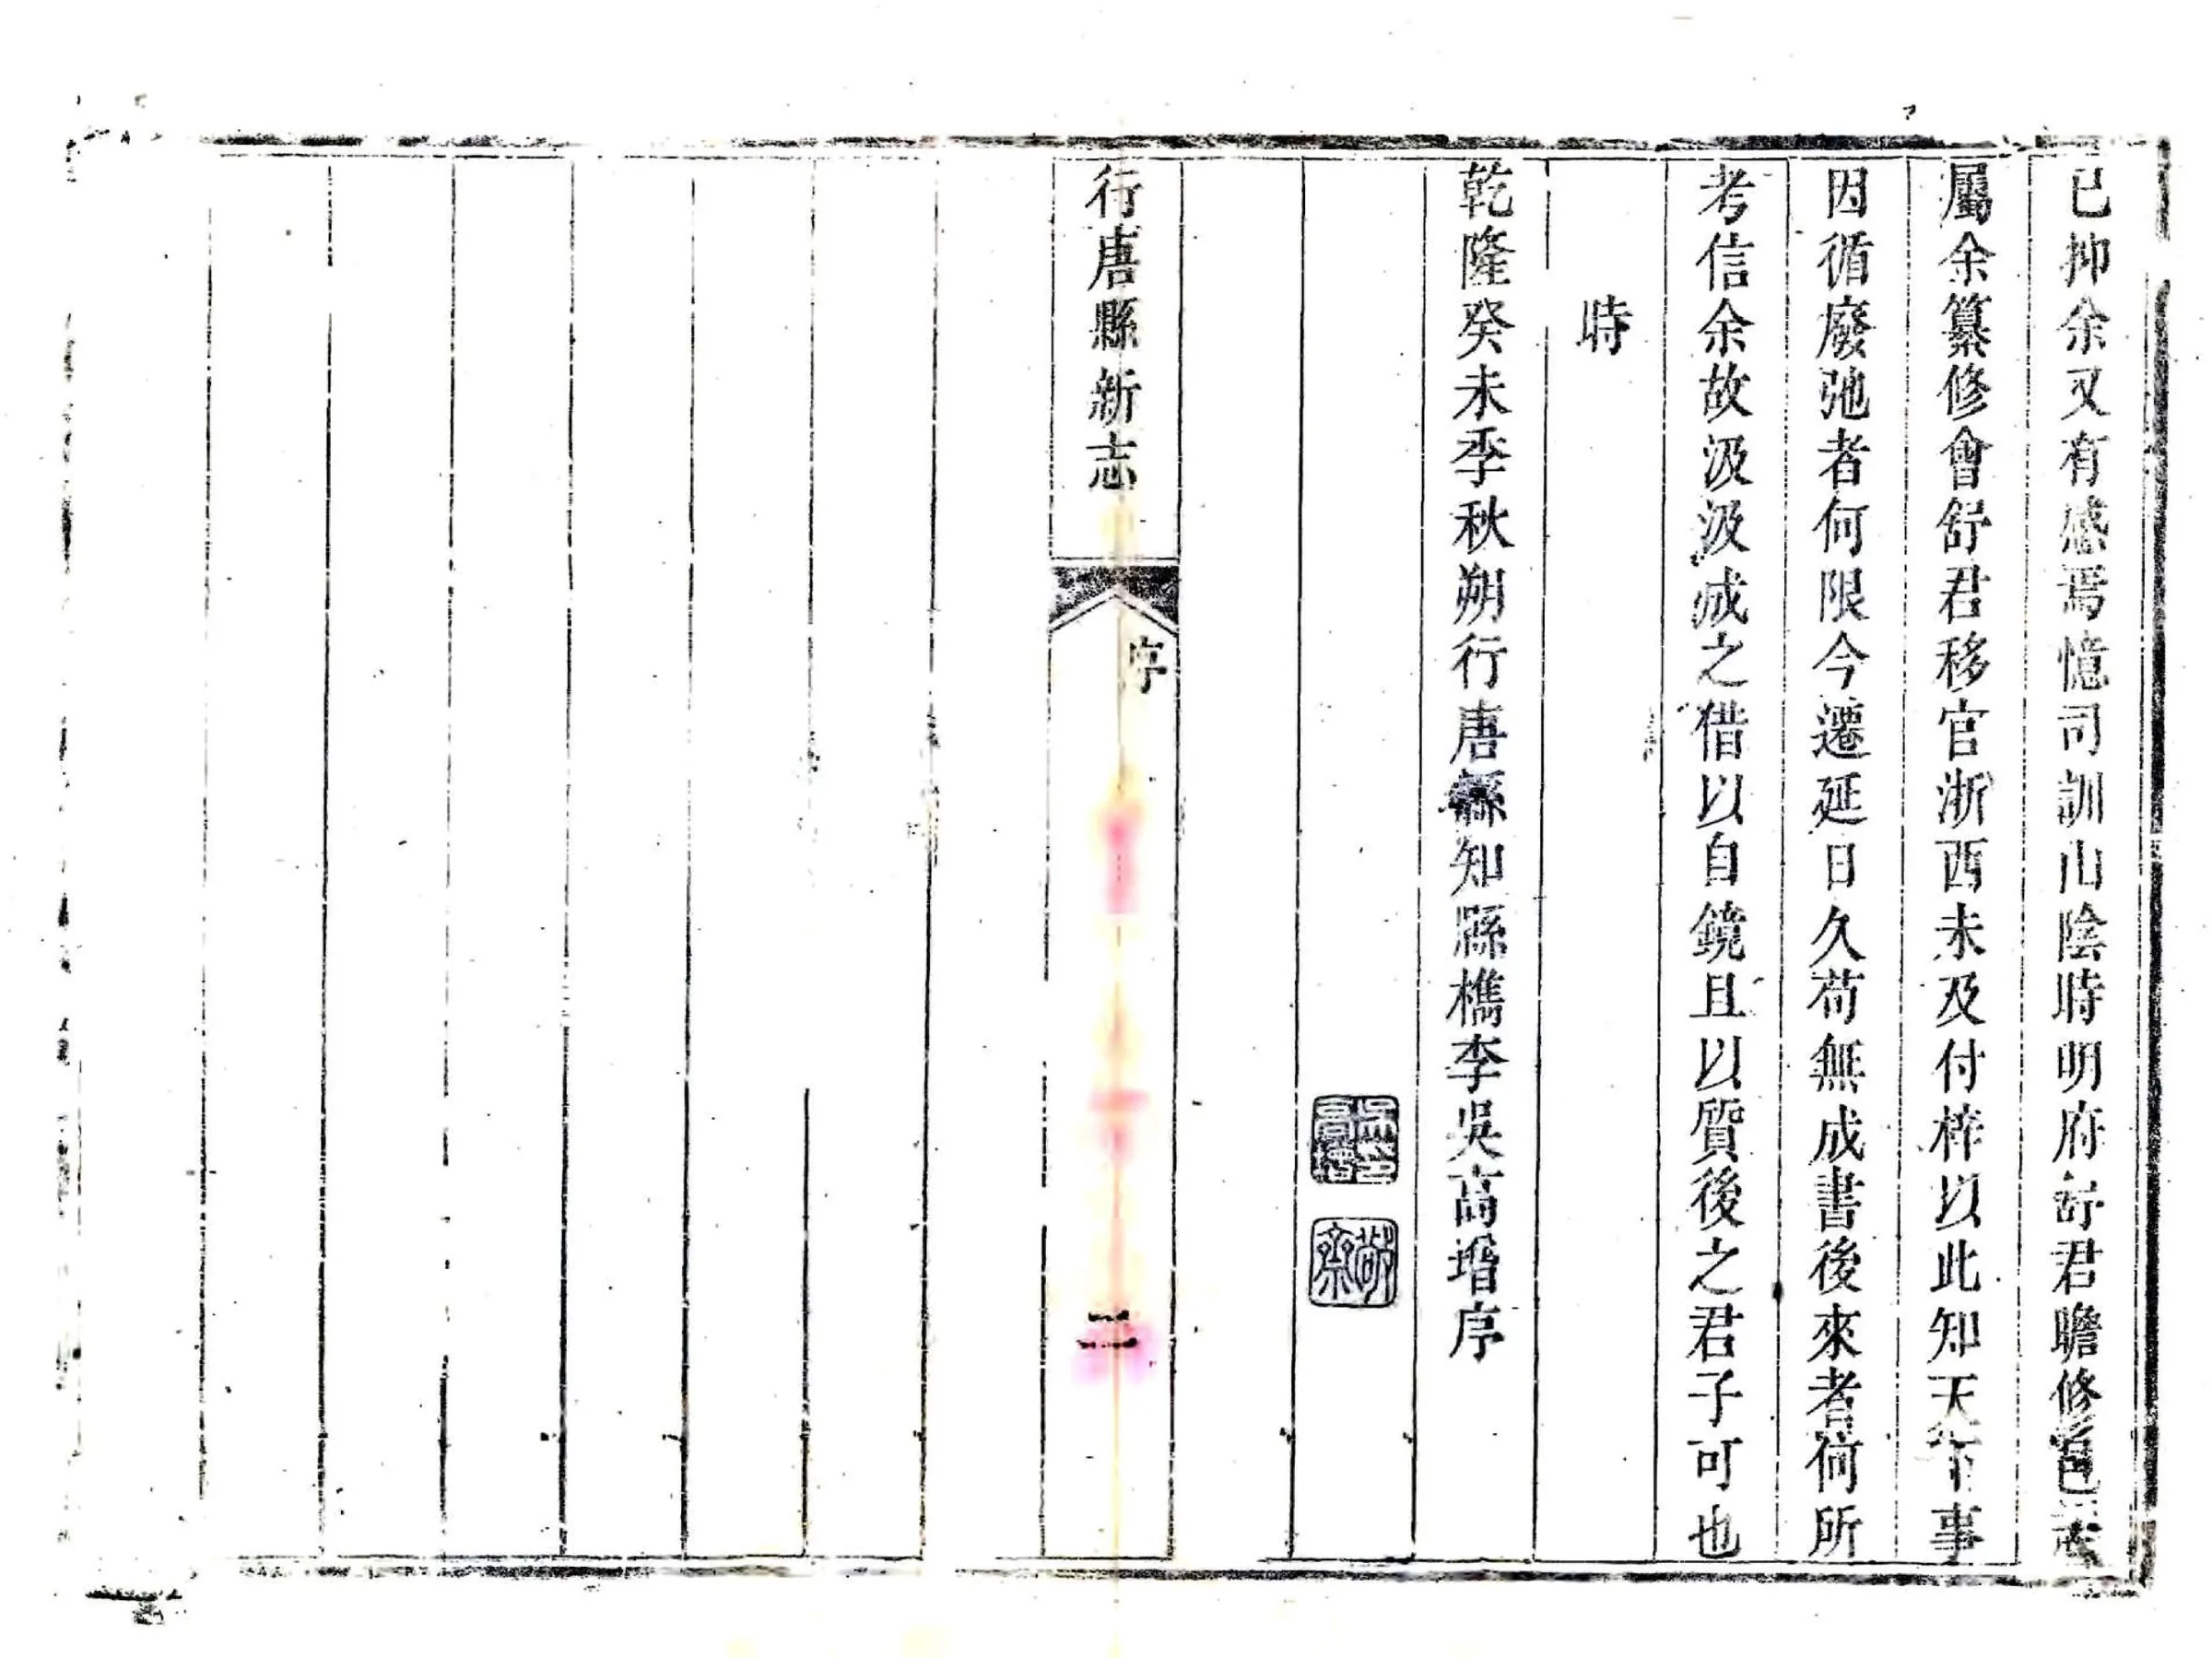 已抑余又有感焉憶司訓山陰時明府舒君瞻修邑志
屬余纂修會舒君移官浙西未及付梓以此知天下事
因循廢弛者何限今遷延日久苟無成書後來者何所
考信余故汲汲成之借以自鏡且以質後之君子可也
時
乾隆癸未季秋朔行唐縣知縣檇李吳高增序
吳高增印
敬齋
行唐縣新志
序
二